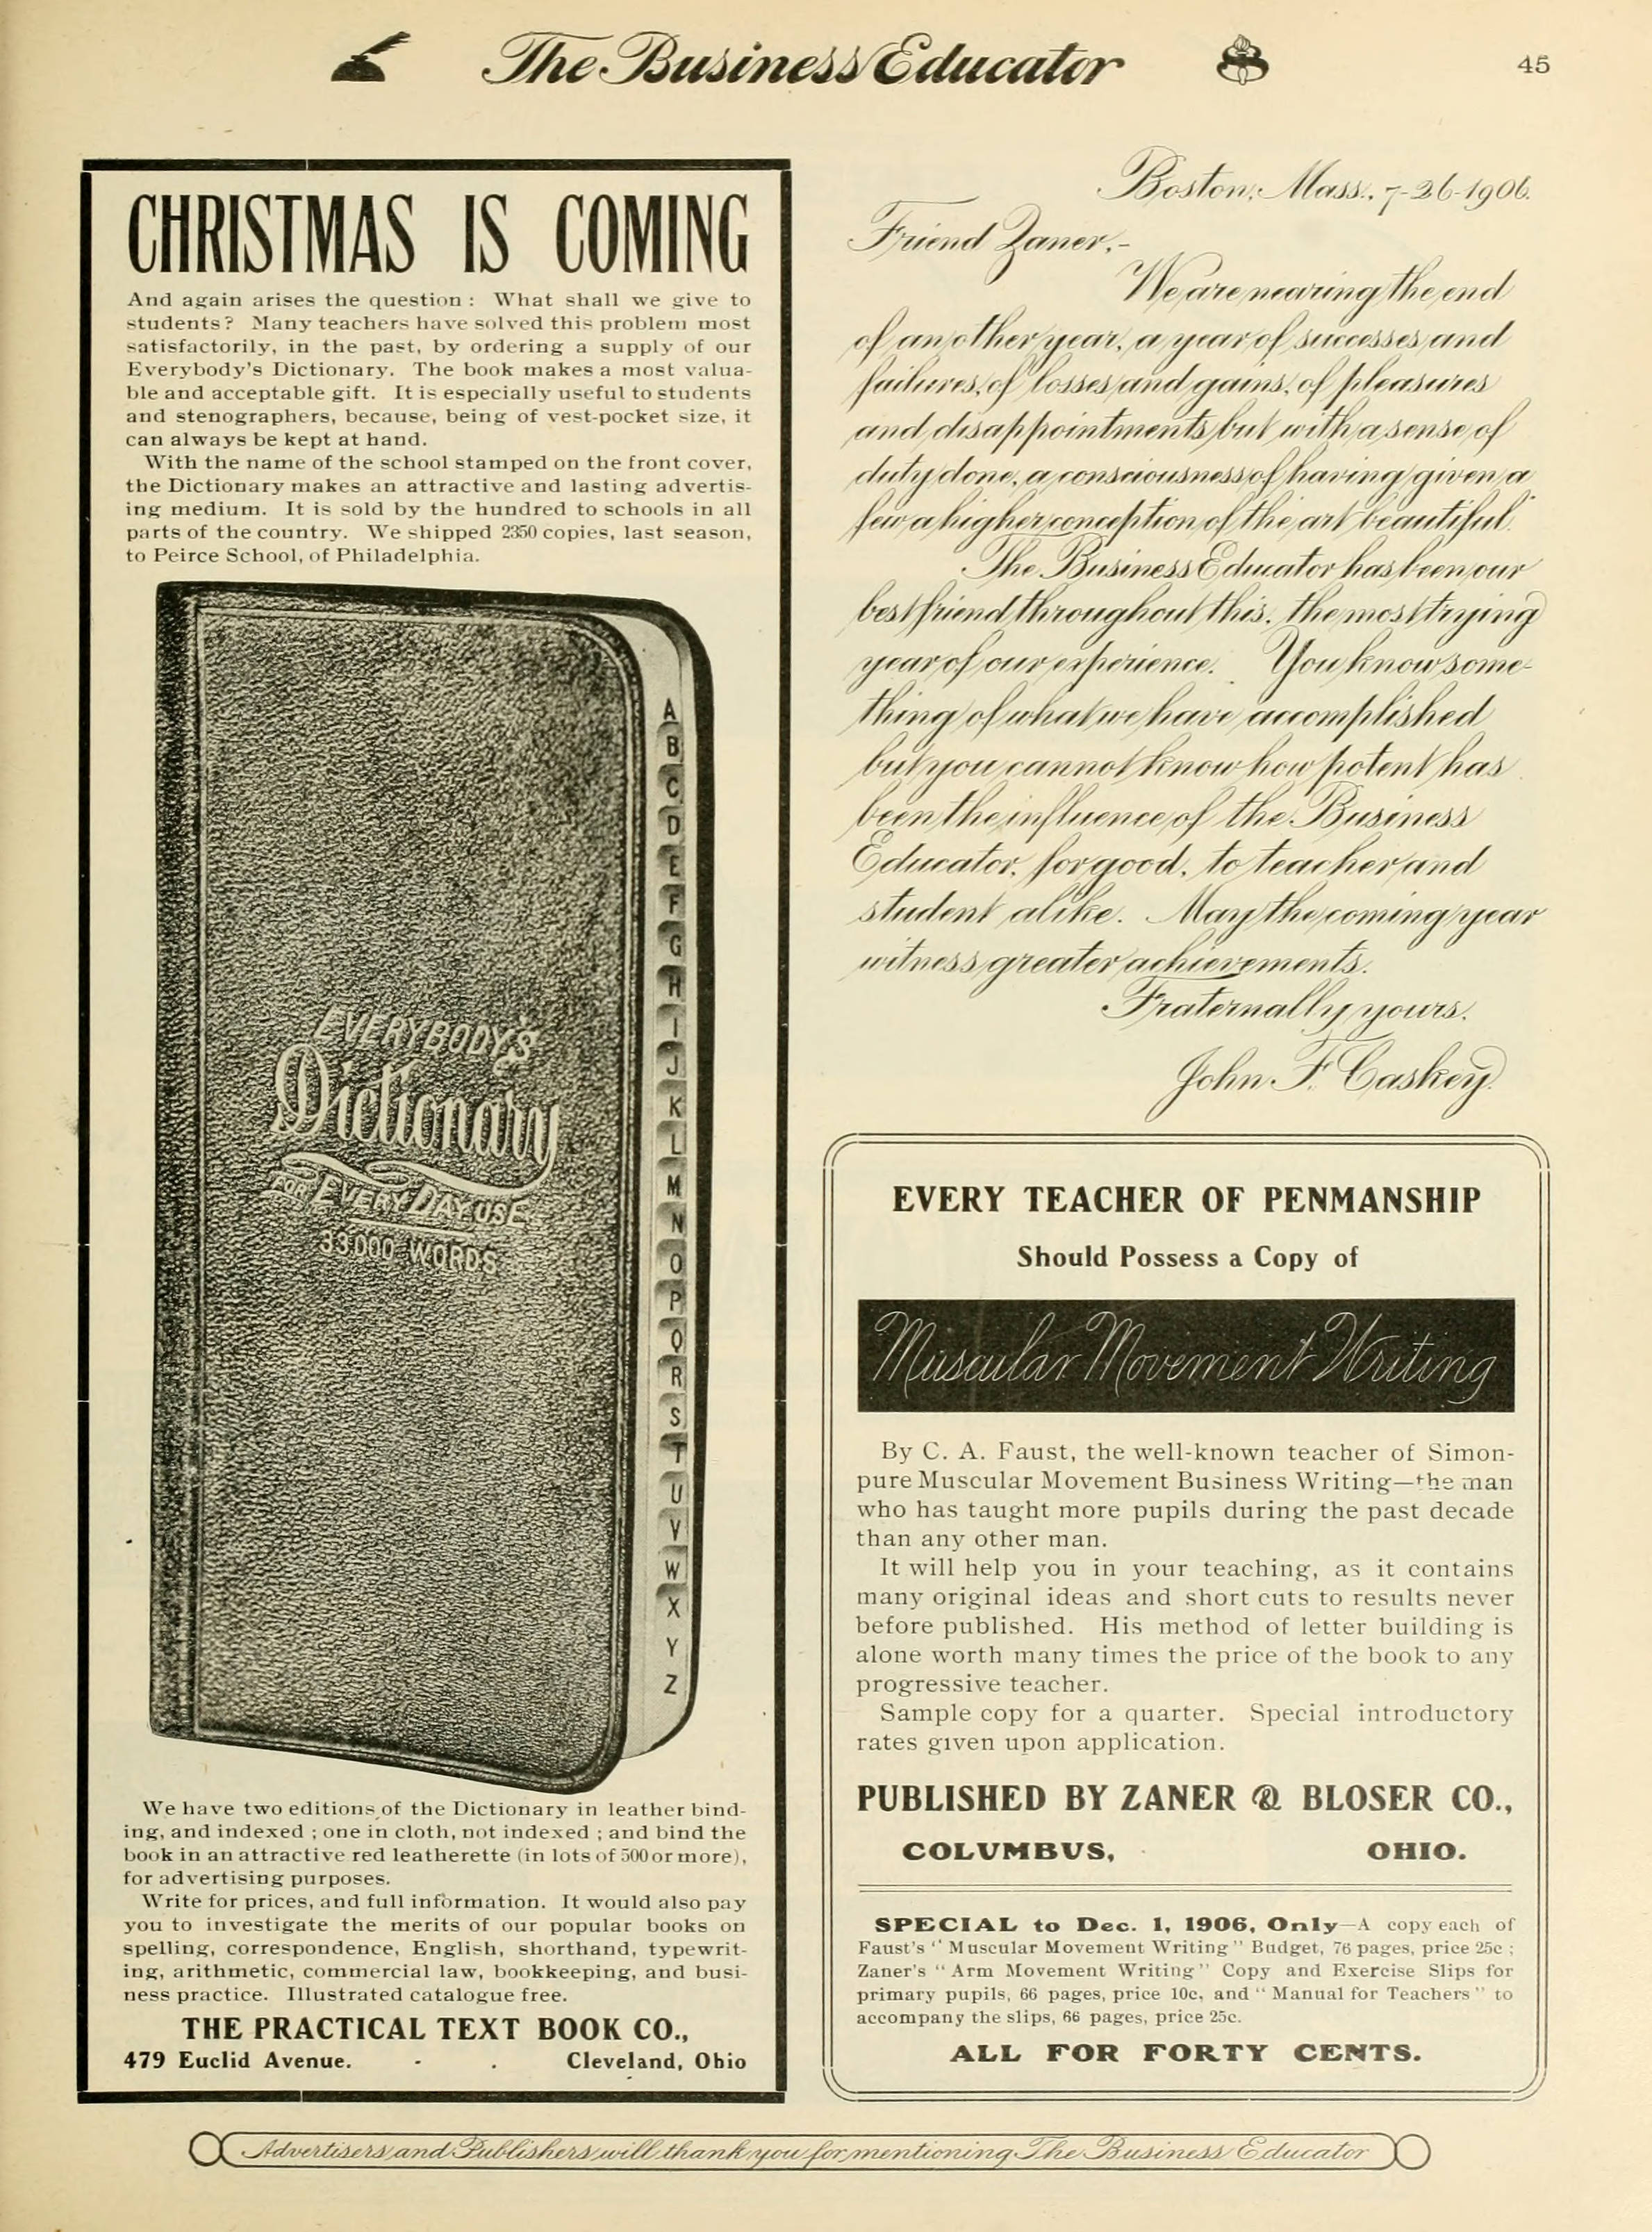 The Business Educator
45
CHRISTMAS IS COMING
And again arises the question : What shall we give to
students? Many teachers have solved this problem most
satisfactorily, in the past, by ordering a supply of our
Everybody's Dictionary. The book makes a most valua-
ble and acceptable gift. It is especially useful to students
and stenographers, because, being of vest-pocket size, it
can always be kept at hand.
With the name of the school stamped on the front cover,
the Dictionary makes an attractive and lasting advertis-
ing medium. It is sold by the hundred to schools in all
parts of the country. We shipped 2350 copies, last season,
to Peirce School, of Philadelphia.
EVERYBODY'S
Dictionary
FOR EVERY DAY USE
33000 WORDS
A
B
C
D
E
F
G
H
I
J
K
L
M
N
O
P
Q
R
S
T
U
V
W
X
Y
Z
We have two editions of the Dictionary in leather bind-
ing, and indexed ; one in cloth, not indexed ; and bind the
book in an attractive red leatherette (in lots of 500 or more),
for advertising purposes.
Write for prices, and full information. It would also pay
you to investigate the merits of our popular books on
spelling, correspondence, English, shorthand, typewrit-
ing, arithmetic, commercial law, bookkeeping, and busi-
ness practice. Illustrated catalogue free.
THE PRACTICAL TEXT BOOK CO.,
479 Euclid Avenue. - . Cleveland, Ohio
Boston, Mass., 7-26-1906.
Friend Zaner,-
We are nearing the end
of an other year, a year of successes and
failures, of losses and gains, of pleasures
and disappointments but with a sense of
duty done, a consciousness of having given a
few a higher conception of the art beautiful.
The Business Educator has been our
best friend throughout this, the most trying
year of our experience. You know some-
thing of what we have accomplished
but you cannot know how potent has
been the influence of the Business
Educator, for good, to teacher and
student alike. May the coming year
witness greater achievements.
Fraternally yours,
John F. Caskey.
EVERY TEACHER OF PENMANSHIP
Should Possess a Copy of
Muscular Movement Writing
By C. A. Faust, the well-known teacher of Simon-
pure Muscular Movement Business Writing—the man
who has taught more pupils during the past decade
than any other man.
It will help you in your teaching, as it contains
many original ideas and short cuts to results never
before published. His method of letter building is
alone worth many times the price of the book to any
progressive teacher.
Sample copy for a quarter. Special introductory
rates given upon application.
PUBLISHED BY ZANER & BLOSER CO.,
COLUMBUS, OHIO.
SPECIAL to Dec. 1, 1906, Only—A copy each of
Faust's "Muscular Movement Writing" Budget, 76 pages, price 25c ;
Zaner's "Arm Movement Writing" Copy and Exercise Slips for
primary pupils, 66 pages, price 10c, and "Manual for Teachers" to
accompany the slips, 66 pages, price 25c.
ALL FOR FORTY CENTS.
Advertisers and Publishers will thank you for mentioning The Business Educator